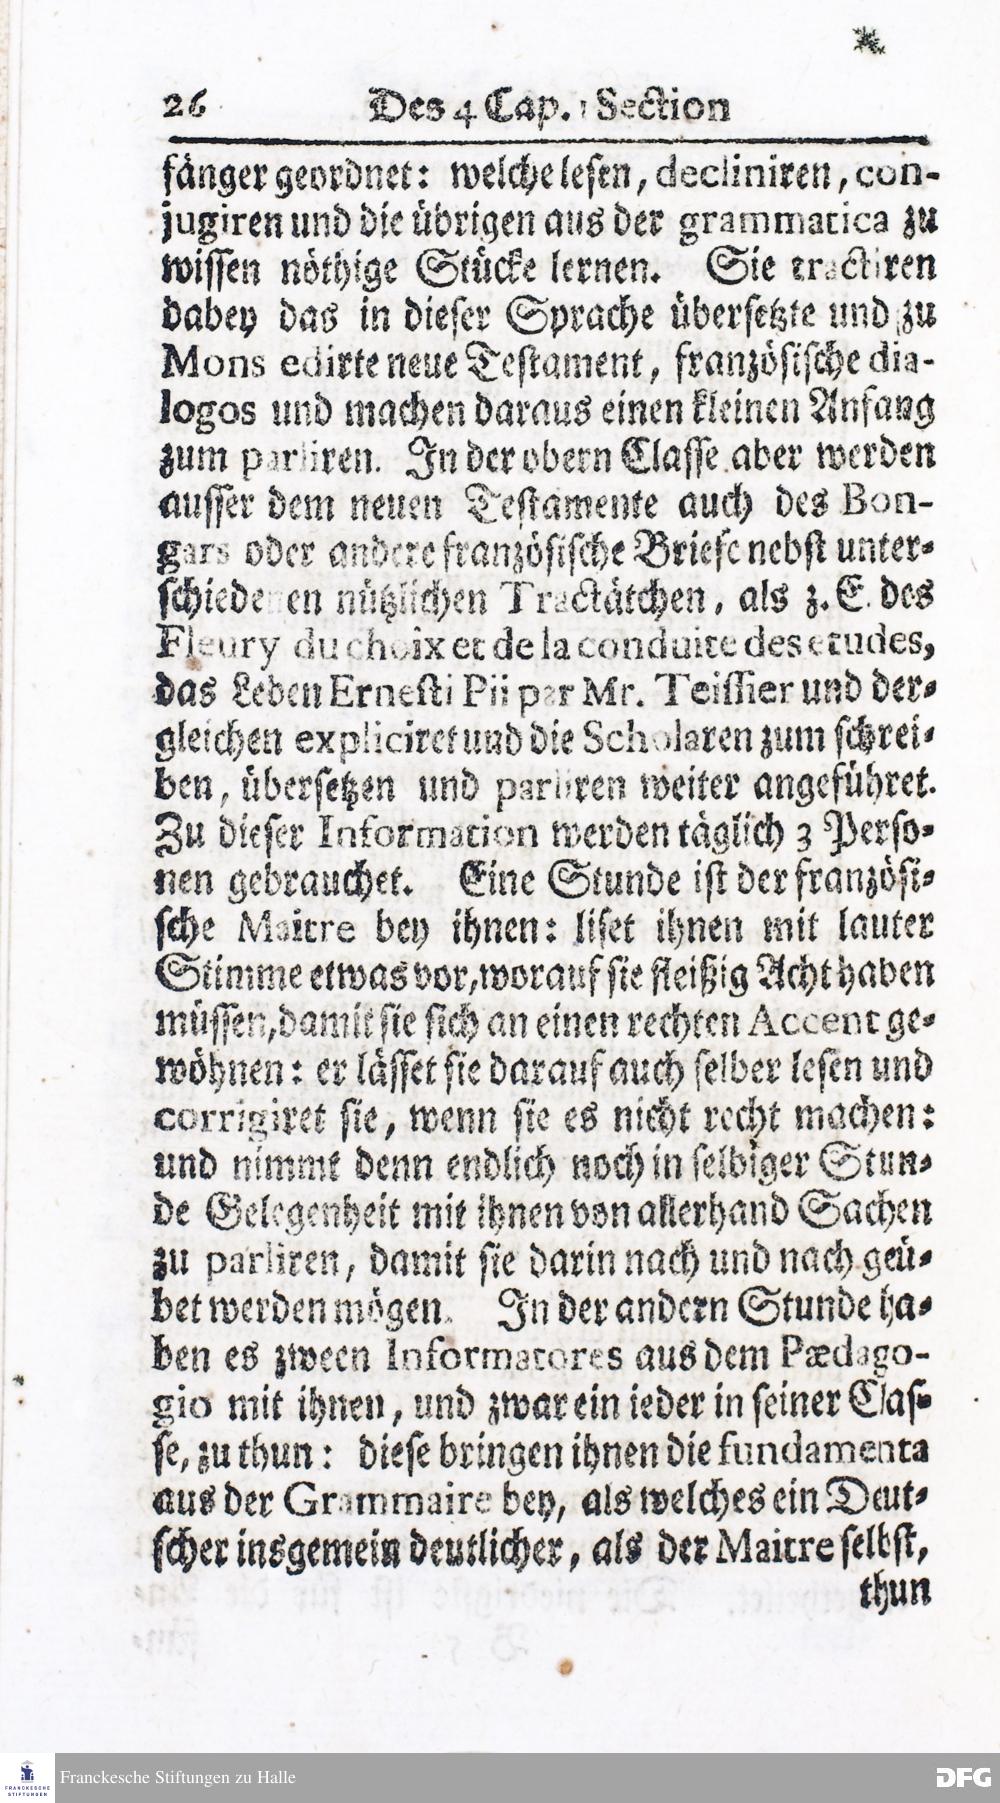 26 Des 4 Cap. 1 Section
fänger geordnet: welche lesen, decliniren, con-
jugiren und die übrigen aus der grammatica zu
wissen nöthige Stücke lernen. Sie tractiren
dabey das in dieser Sprache übersetzte und zu
Mons edirte neue Testament, französische dia-
logos und machen daraus einen kleinen Anfang
zum parliren. In der obern Classe aber werden
ausser dem neuen Testamente auch des Bon-
gars oder andere französische Briefe nebst unter-
schiedenen nützlichen Tractätchen, als z. E. des
Fleury du choix et de la conduite des etudes,
das Leben Ernesti Pii par Mr. Teissier und der-
gleichen expliciret und die Scholaren zum schrei-
ben, übersetzen und parliren weiter angeführet.
Zu dieser Information werden täglich 3 Perso-
nen gebrauchet. Eine Stunde ist der französi-
sche Maitre bey ihnen: liset ihnen mit lauter
Stimme etwas vor, worauf sie fleißig Acht haben
müssen, damit sie sich an einen rechten Accent ge-
wöhnen: er lässet sie darauf auch selber lesen und
corrigiret sie, wenn sie es nicht recht machen:
und nimmt denn endlich noch in selbiger Stun-
de Gelegenheit mit ihnen von allerhand Sachen
zu parliren, damit sie darin nach und nach geü-
bet werden mögen. In der andern Stunde ha-
ben es zween Informatores aus dem Pædago-
gio mit ihnen, und zwar ein ieder in seiner Clas-
se, zu thun: diese bringen ihnen die fundamenta
aus der Grammaire bey, als welches ein Deut-
scher insgemein deutlicher, als der Maitre selbst,
thun
FRANCKESCHE
STIFTUNGEN
Franckesche Stiftungen zu Halle
DFG